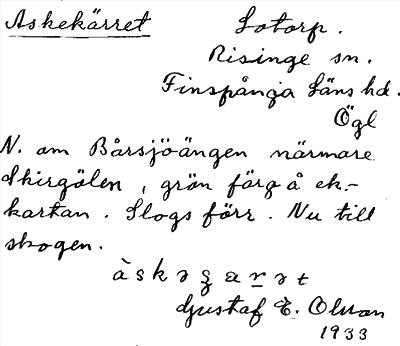 Askekärret
Lotorp.
Risinge sn.
Finspånga läns hd.
Ögl
N. om Bårsjöängen närmare
Skirgölen, grön färg å ek.-
kartan. Slogs förr. Nu till
skogen.
Gustaf E. Olsson
1933